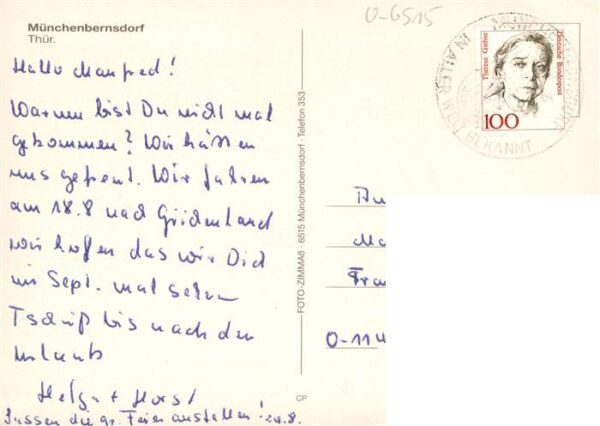 Münchenbernsdorf
Thür.
Hallo Manfred!
Warum bist Du nicht mal
gekommen? Wir hätten
uns gefreut. Wir fahren
am 18.8 nach Gridenland
wir hoffen das wir Dich
im Sept. mal sehen
Tschüß bis nach den
Urlaub
Helga + Horst
Lassen die gr. Feier ausfallen!
FOTO-ZIMMAß · 6515 Münchenbernsdorf · Telefon 353
CP
O-6515
Therese Giehse
Deutsche Bundespost
100
IN ALLER WELT BEKANNT
An
Ma
Fra
O-114